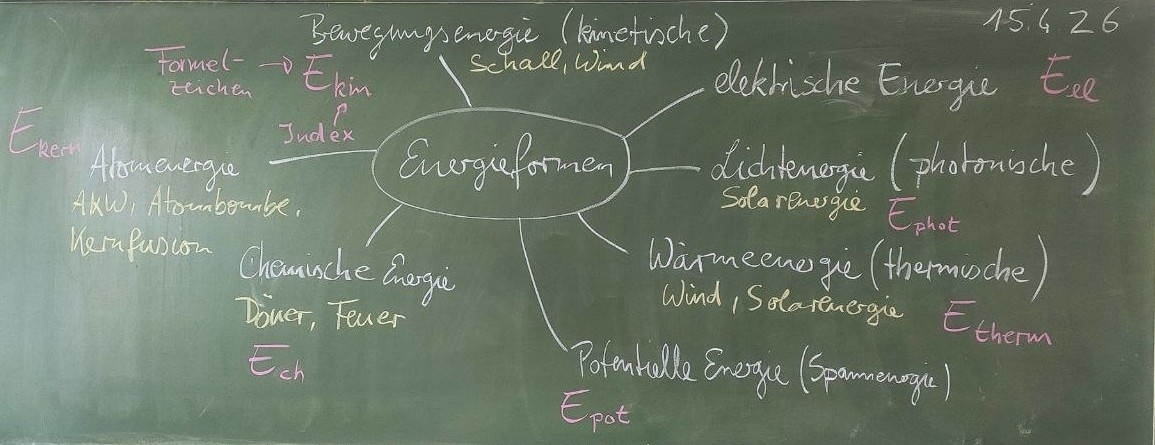 15.4.26
Bewegungsenergie (kinetische)
Schall, Wind
Formel-
zeichen → E kin
Index
elektrische Energie E el
E kern
Atomenergie
AKW, Atombombe,
Kernfusion
Energieformen
Lichtenergie (photonische)
Solarenergie
E phot
Chemische Energie
Döner, Feuer
E ch
Wärmeenergie (thermische)
Wind, Solarenergie
E therm
Potentielle Energie (Spannenergie)
E pot